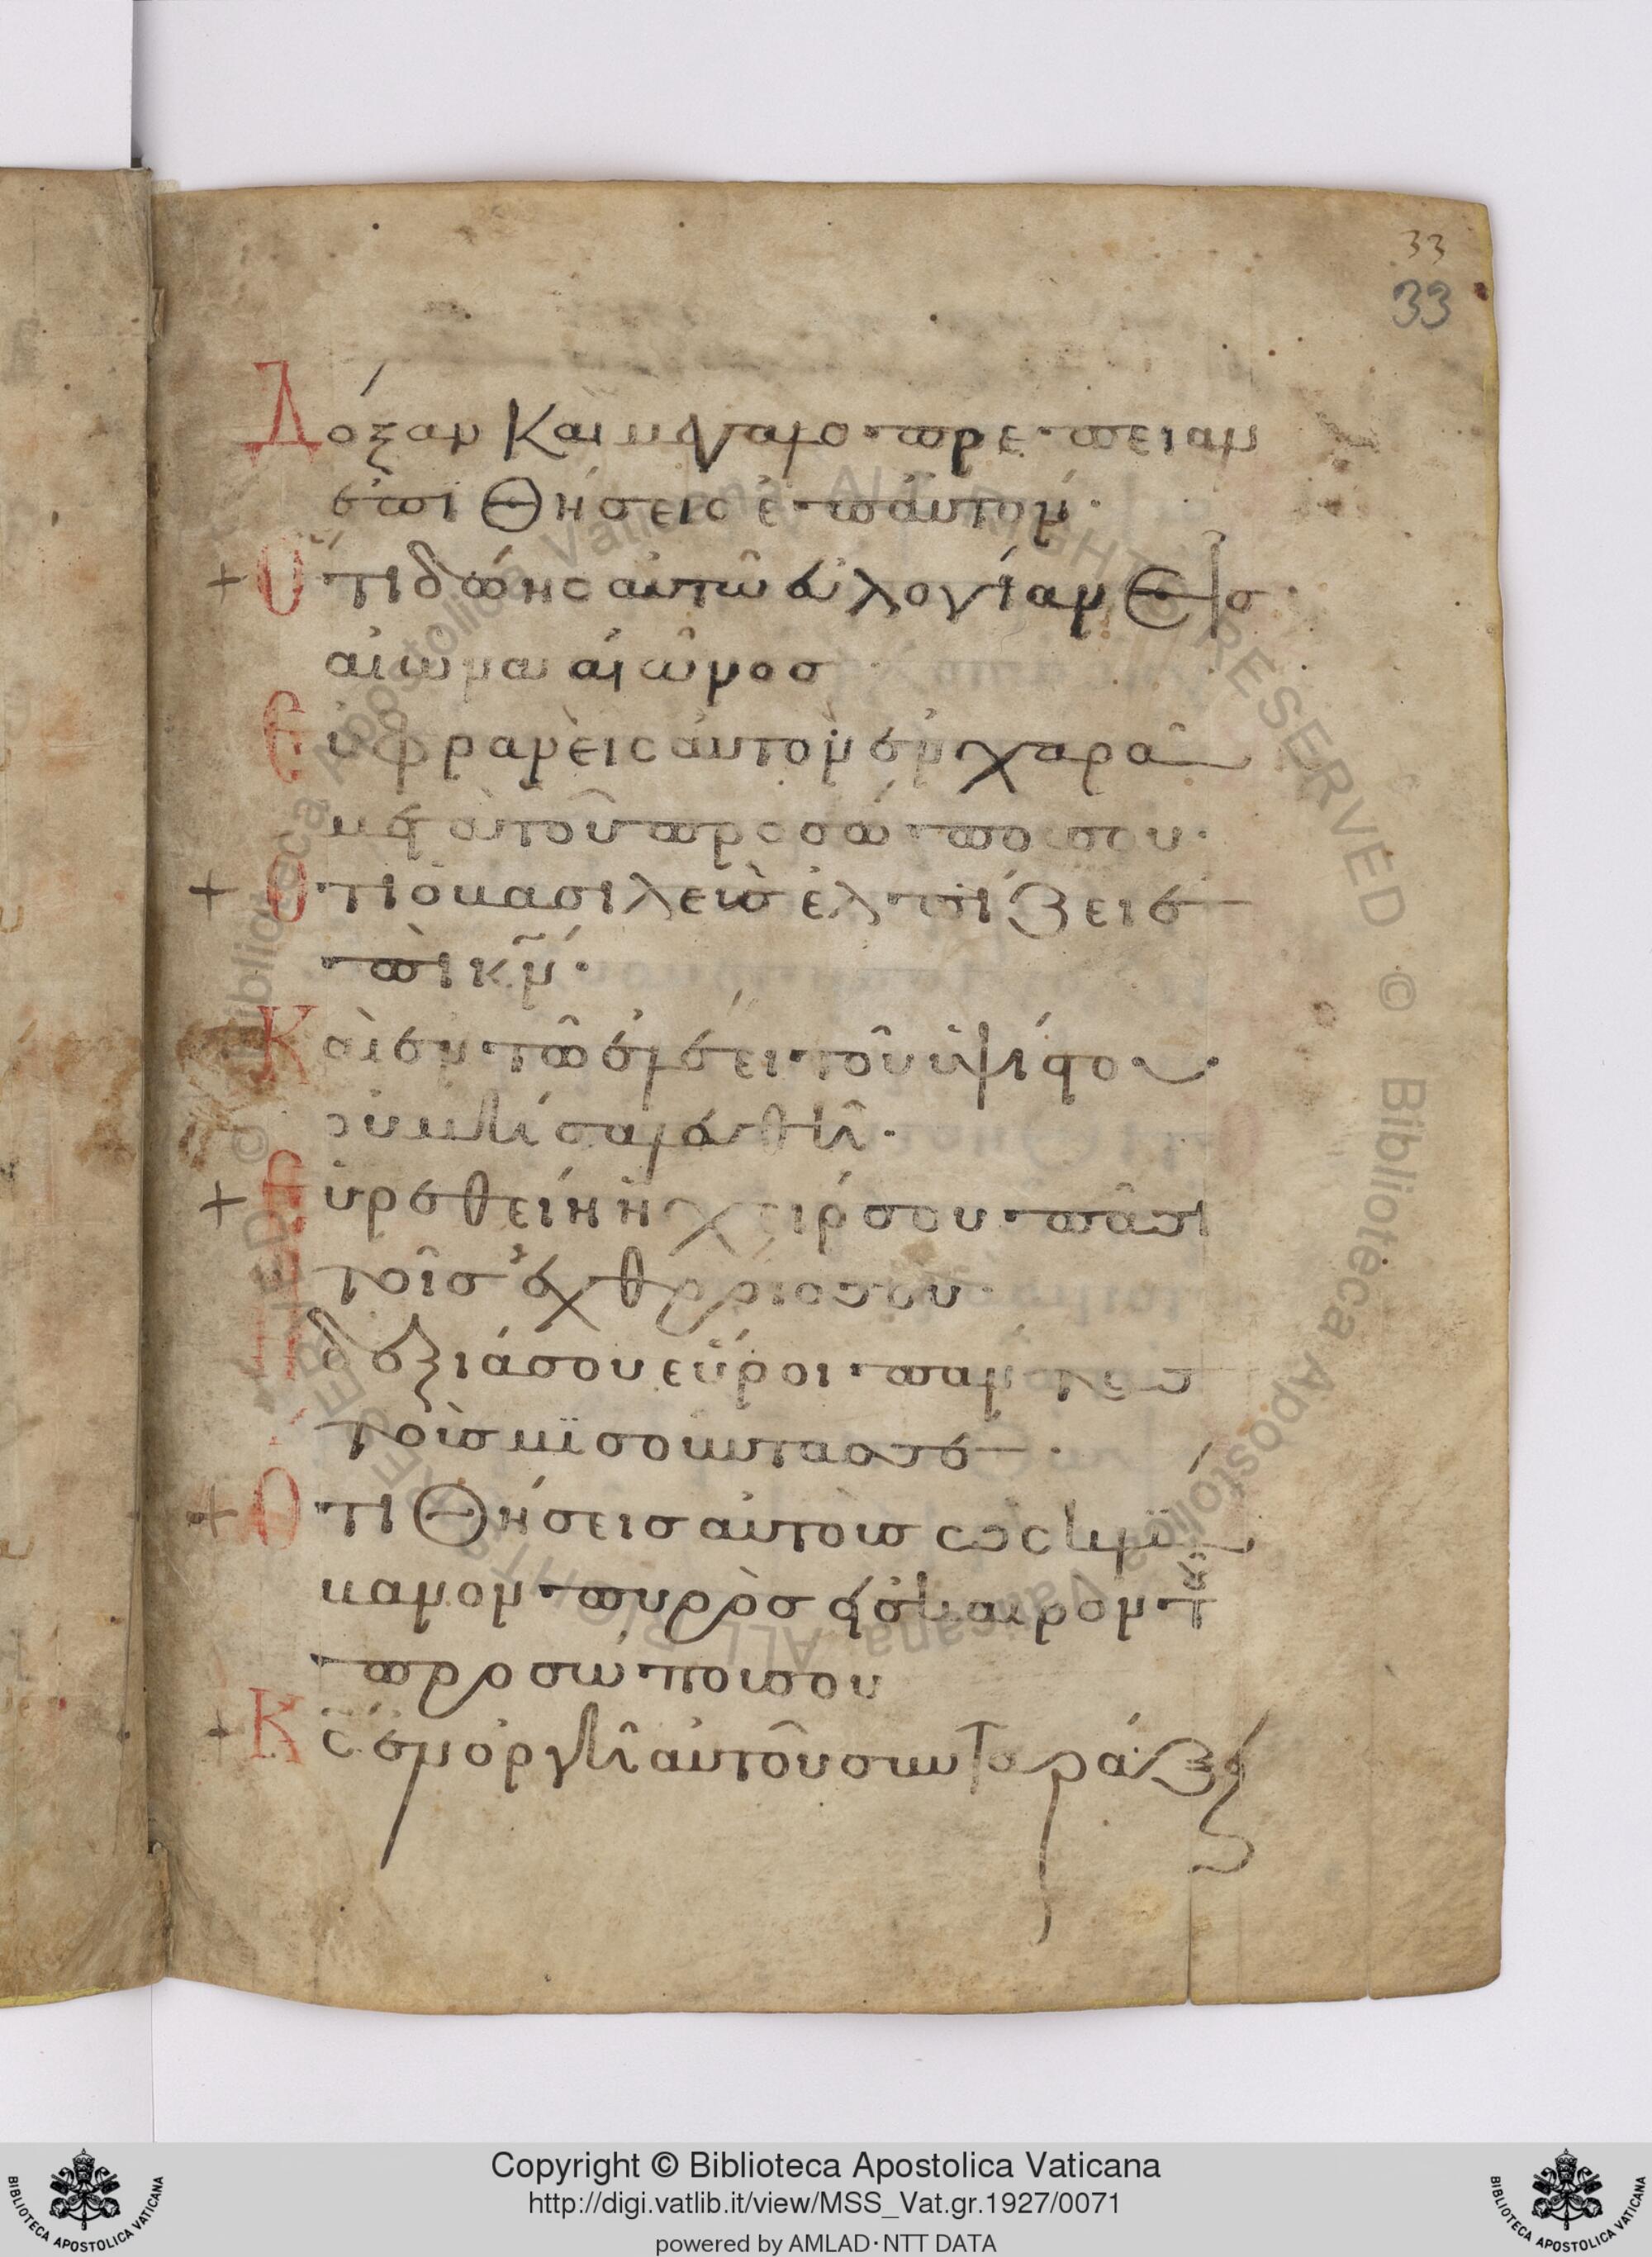 33
33
Δόξαν καὶ μεγαλοπρέπειαν
ἐπιθήσεις ἐπ' αὐτόν·
+ Ὅτι δώης αὐτῶ εὐλογίαν εἰς
αἰῶνα αἰῶνος
Εὐφρανεῖς αὐτὸν ἐν χαρᾶ
μετὰ τοῦ προσώπου σου·
+ Ὅτι ὁ βασιλεὺς ἐλπίζει ἐ
πὶ κν·
Καὶ ἐν τῶ ἐλέει τοῦ ὑψίστου·
οὐ μὴ σαλευθῆ·
+ Εὑρεθείη ἡ χείρ σου πᾶσι
τοῖς ἐχθροῖς σου·
Ἡ δεξιά σου εὕροι πάντας
τοὺς μισοῦντας σε·
+ Ὅτι θήσεις αὐτοὺς ὡς κλί
βανον πυρὸς εἰς καιρὸν τοῦ
προσώπου σου
+ Κς ἐν ὀργῆ αὐτοῦ συνταράξει
Copyright © Biblioteca Apostolica Vaticana
http://digi.vatlib.it/view/MSS_Vat.gr.1927/0071
powered by AMLAD·NTT DATA
BIBLIOTECA APOSTOLICA VATICANA
BIBLIOTECA APOSTOLICA VATICANA